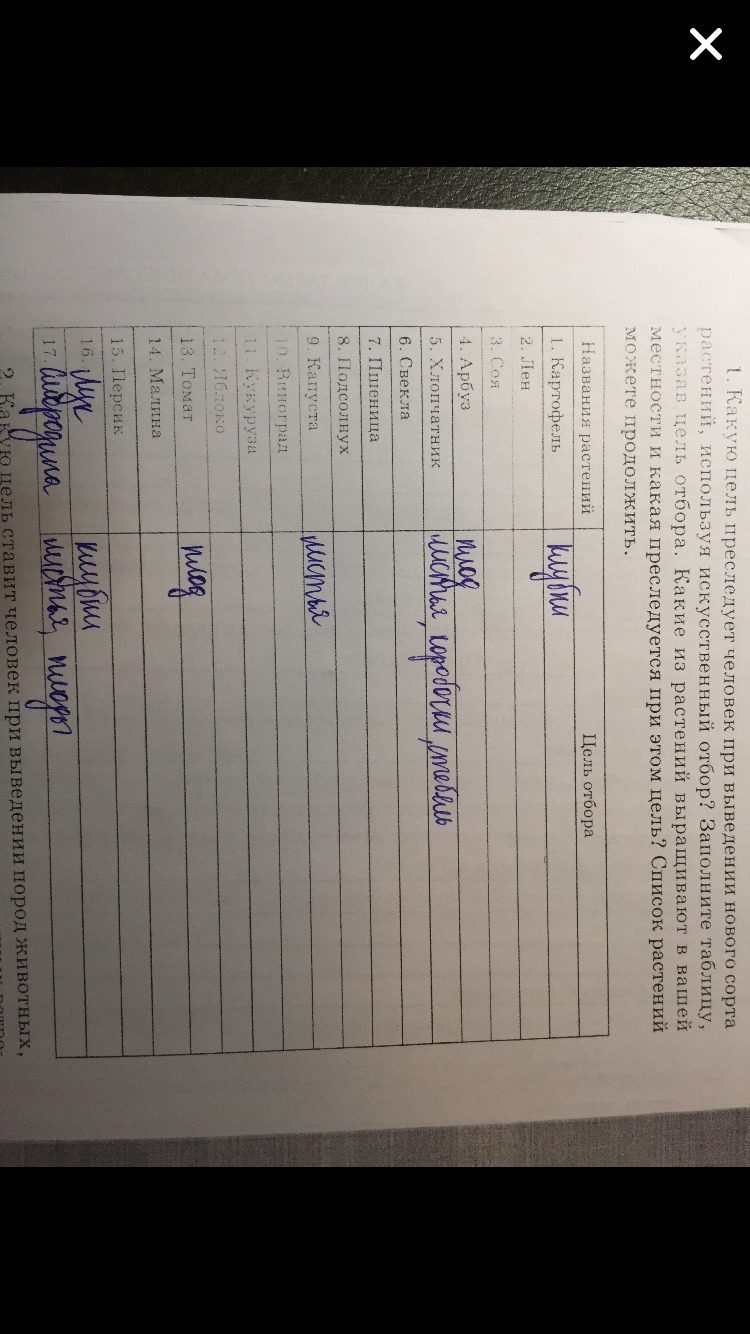 1. Какую цель преследует человек при выведении нового сорта
растений, используя искусственный отбор? Заполните таблицу,
указав цель отбора. Какие из растений выращивают в вашей
местности и какая преследуется при этом цель? Список растений
можете продолжить.
Названия растений Цель отбора
1. Картофель клубни
2. Лен
3. Соя
4. Арбуз плод
5. Хлопчатник листья, коробочки, стебель
6. Свекла
7. Пшеница
8. Подсолнух
9. Капуста листья
10. Виноград
11. Кукуруза
12. Яблоко
13. Томат плод
14. Малина
15. Персик
16. Лук клубни
17. Смородина листья, плоды
2. Какую цель ставит человек при выведении пород животных,